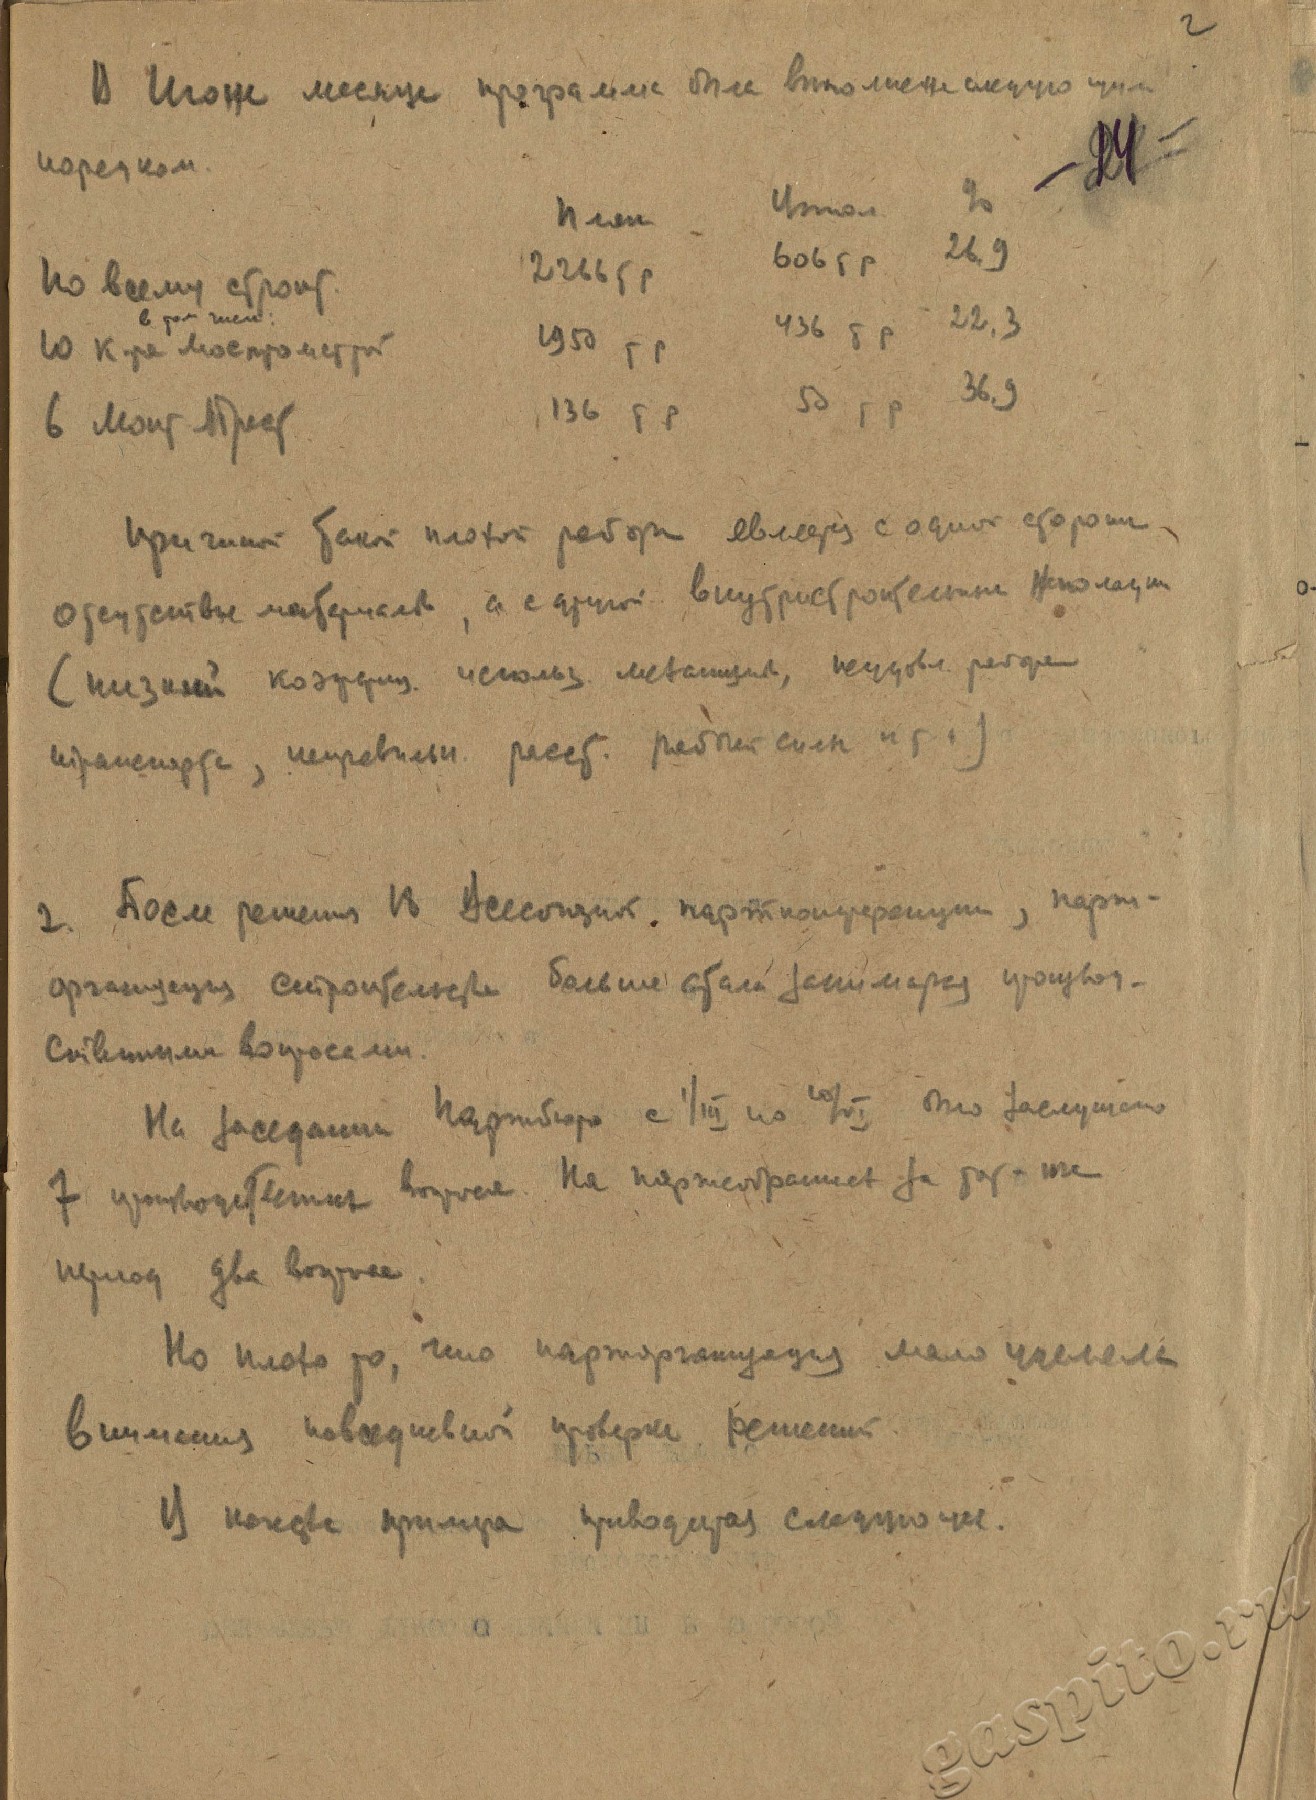 2
В Июне месяце программа была выполнена следующим
порядком.
- 24 =
План Испол %
По всему строит. 2266 т р 606 т р 26.9
в том числе:
10 к-ра Моспромстрой 1950 т р 436 т р 22.3
6 Монт Трест 136 т р 50 т р 36.9
Причиной такой плохой работы является с одной стороны
отсутствие материалов, а с другой внутристроительные неполадки
(низкий коэффиц. использ. механизмов, неудовл. работа
транспорта, неправильн. расст. рабочей силы и т. д)
2. После решения 18 Всесоюзной партконференции, парт-
организация строительства больше стала заниматься производ-
ственными вопросами.
На заседании Партбюро с 1/III по 20/VI было заслушано
7 производственных вопроса. На партсобраниях за тот-же
период два вопроса.
Но плохо то, что парторганизация мало уделяла
внимания повседневной проверке решений.
В качестве примера приводится следующие.
gaspito.ru